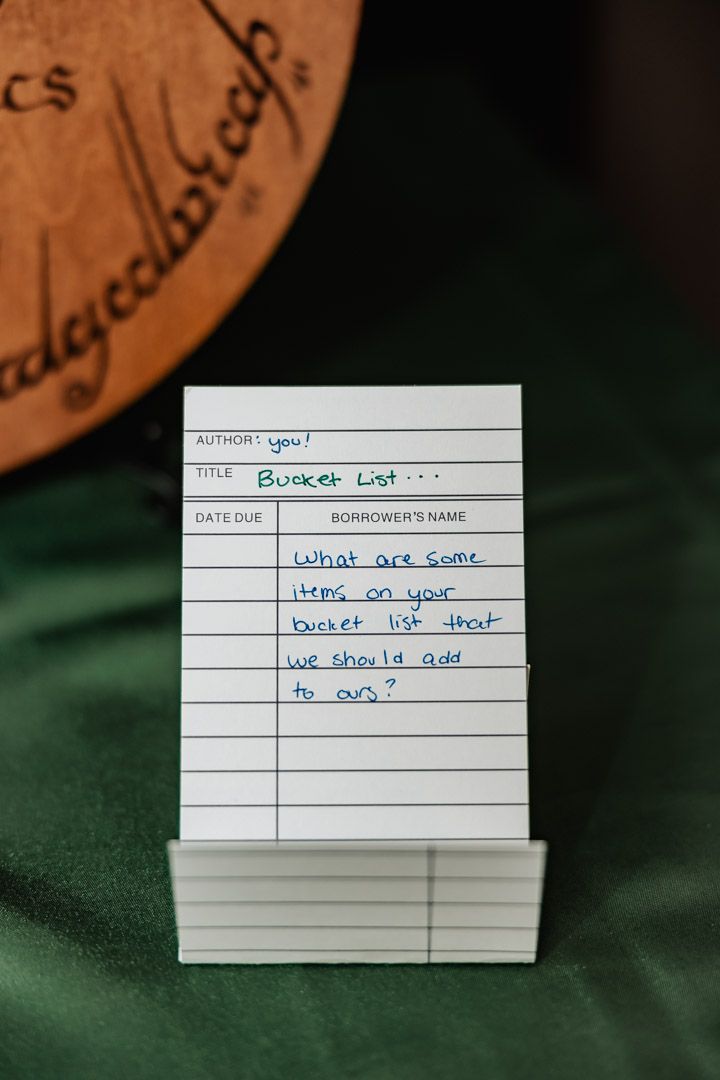 cs
AUTHOR: you!
TITLE Bucket List...
DATE DUE BORROWER'S NAME
What are some
items on your
bucket list that
we should add
to ours?